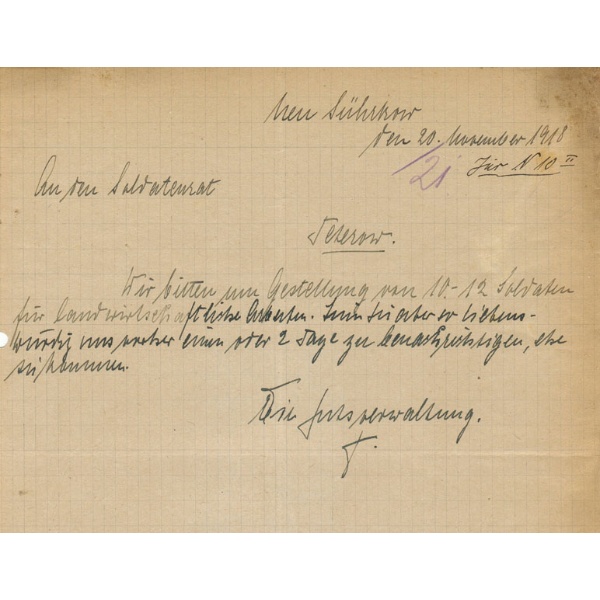 Neu Sührkow
den 20. November 1918
21 Für N 10 II
An den Soldatenrat
Teterow.
Wir bitten um Gestellung von 10-12 Soldaten
für landwirtschaftliche Arbeiten. aber so liebens-
würdig uns vorher einen oder 2 Tage zu benachrichtigen, ehe
sie kommen.
Die Gutsverwaltung.